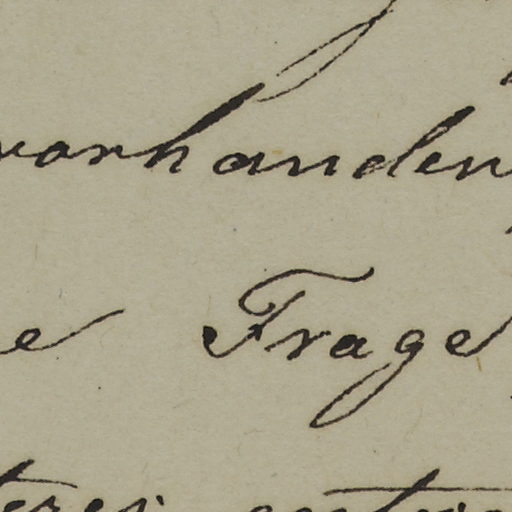 vorhanden
e Frage